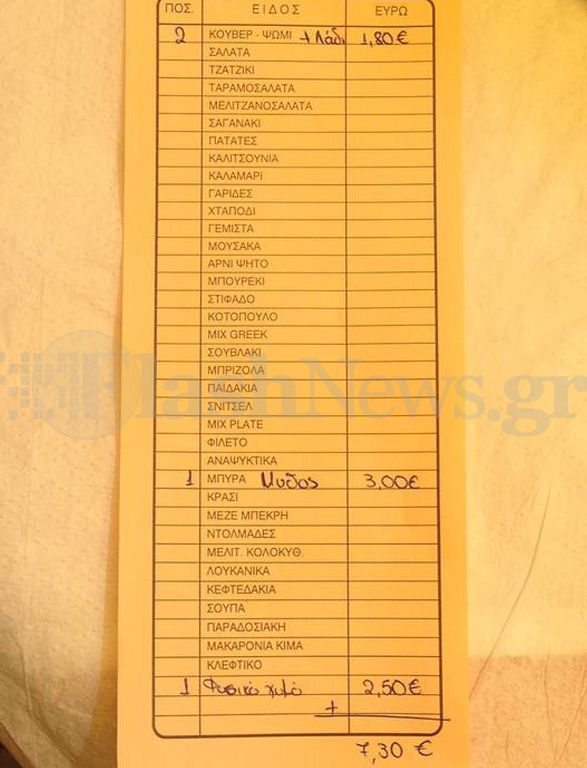 ΠΟΣ. ΕΙΔΟΣ ΕΥΡΩ
2 ΚΟΥΒΕΡ - ΨΩΜΙ + Λάδι 1,80€
ΣΑΛΑΤΑ
ΤΖΑΤΖΙΚΙ
ΤΑΡΑΜΟΣΑΛΑΤΑ
ΜΕΛΙΤΖΑΝΟΣΑΛΑΤΑ
ΣΑΓΑΝΑΚΙ
ΠΑΤΑΤΕΣ
ΚΑΛΙΤΣΟΥΝΙΑ
ΚΑΛΑΜΑΡΙ
ΓΑΡΙΔΕΣ
ΧΤΑΠΟΔΙ
ΓΕΜΙΣΤΑ
ΜΟΥΣΑΚΑ
ΑΡΝΙ ΨΗΤΟ
ΜΠΟΥΡΕΚΙ
ΣΤΙΦΑΔΟ
ΚΟΤΟΠΟΥΛΟ
MIX GREEK
ΣΟΥΒΛΑΚΙ
ΜΠΡΙΖΟΛΑ
ΠΑΪΔΑΚΙΑ
FlashNews.gr
ΣΝΙΤΣΕΛ
MIX PLATE
ΦΙΛΕΤΟ
ΑΝΑΨΥΚΤΙΚΑ
1 ΜΠΥΡΑ Μυθος 3,00€
ΚΡΑΣΙ
ΜΕΖΕ ΜΠΕΚΡΗ
ΝΤΟΛΜΑΔΕΣ
ΜΕΛΙΤ. ΚΟΛΟΚΥΘ.
ΛΟΥΚΑΝΙΚΑ
ΚΕΦΤΕΔΑΚΙΑ
ΣΟΥΠΑ
ΠΑΡΑΔΟΣΙΑΚΗ
ΜΑΚΑΡΟΝΙΑ ΚΙΜΑ
ΚΛΕΦΤΙΚΟ
1 Φυσικό χυμό 2,50€
+
7,30 €